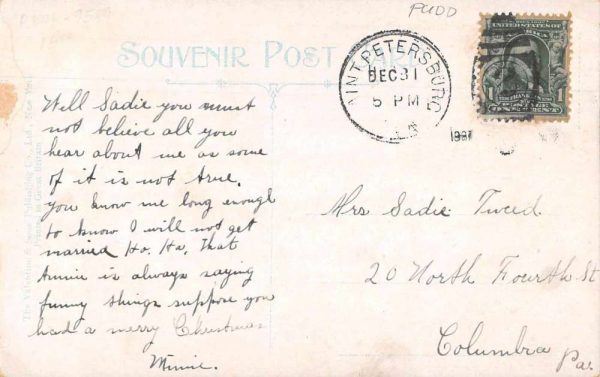 FUDD
SOUVENIR POST CARD
SAINT PETERSBURG
DEC 31
5 PM
Well Sadie you must
not believe all you
hear about me as some
of it is not true.
You know me long enough
to know I will not get
married Ho. Ha. That
Annie is always saying
funny things suppose you
had a merry Christmas
Minnie.
Mrs Sadie Tweed
20 North Fourth St
Columbia
Pa.